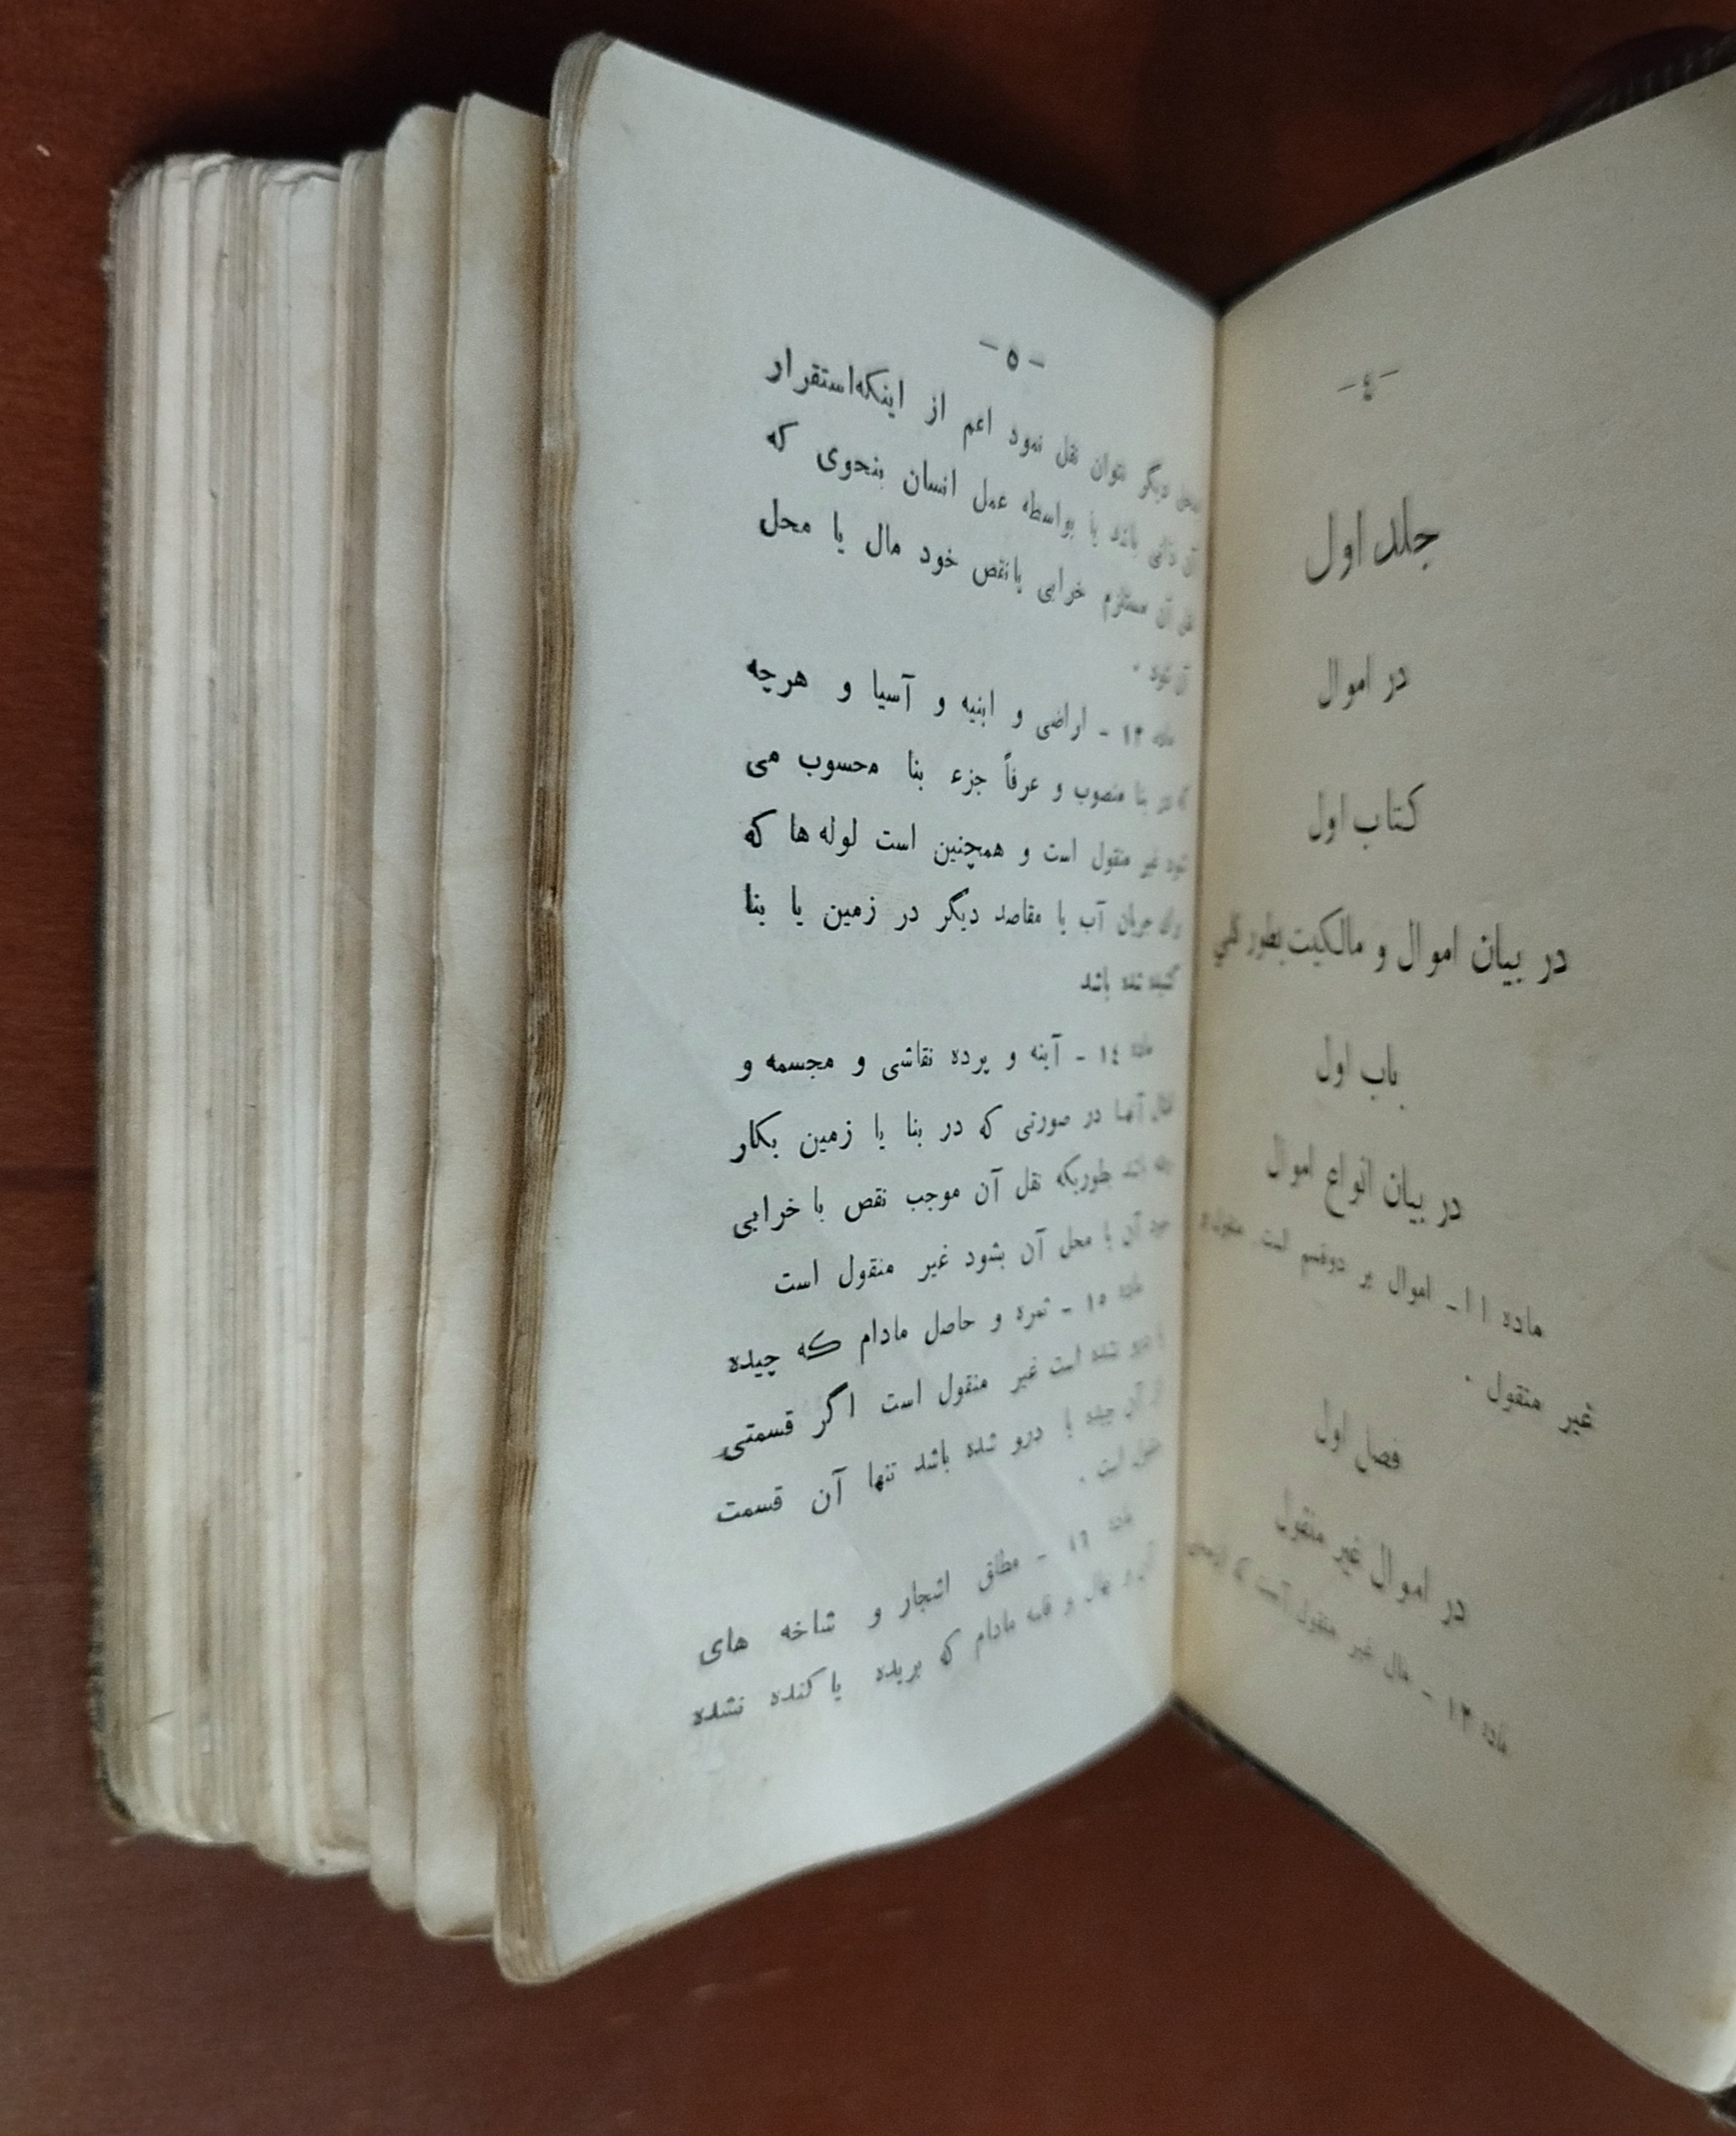 -٤-
جلد اول
در اموال
کتاب اول
در بیان اموال و مالکیت بطور کلی
باب اول
در بیان انواع اموال
ماده ١١- اموال بر دوقسم است منقول و
غیر منقول .
فصل اول
در اموال غیر منقول
ماده ١٢ - مال غیر منقول آنست که از محلی
-٥-
بمحل دیگر نتوان نقل نمود اعم از اینکه استقرار
آن ذاتی باشد یا بواسطه عمل انسان بنحوی که
نقل آن مستلزم خرابی یا نقص خود مال یا محل
آن شود .
ماده ١٣ - اراضی و ابنیه و آسیا و هرچه
که در بنا منصوب و عرفاً جزء بنا محسوب می
شود غیر منقول است و همچنین است لوله ها که
برای جریان آب یا مقاصد دیگر در زمین یا بنا
کشیده شده باشد
ماده ١٤ - آینه و پرده نقاشی و مجسمه و
امثال آنها در صورتی که در بنا یا زمین بکار
رفته باشد طوریکه نقل آن موجب نقص یا خرابی
خود آن یا محل آن بشود غیر منقول است
ماده ١٥ - ثمره و حاصل مادام که چیده
یا درو نشده است غیر منقول است اگر قسمتی
از آن چیده یا درو شده باشد تنها آن قسمت
منقول است .
ماده ١٦ - مطلق اشجار و شاخه های
آن و نهال و قلمه مادام که بریده یا کنده نشده